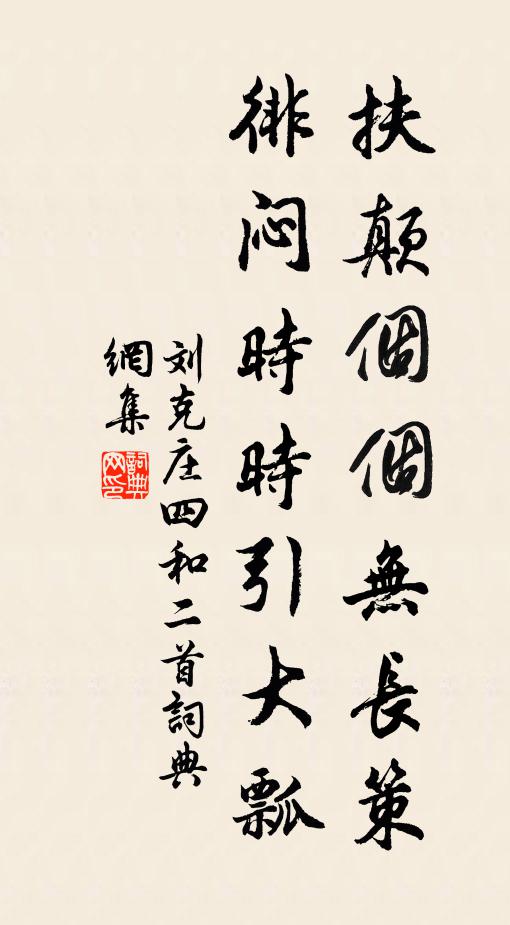 扶顛個個無長策
徘闷時時引大瓢
刘克庄四和二首詞典
網集
詞典網印